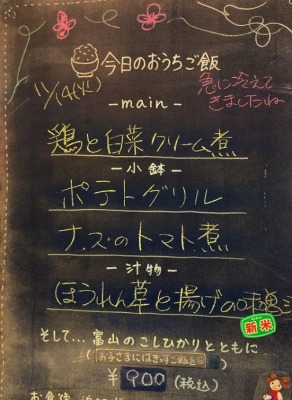 今日のおうちご飯
11/14(火)
急に冷えて
きましたね
-main-
鶏と白菜クリーム煮
-小鉢-
ポテトグリル
ナスのトマト煮
-汁物-
ほうれん草と揚げの味噌
新米
そして...富山のこしひかりとともに
¥900(税込)